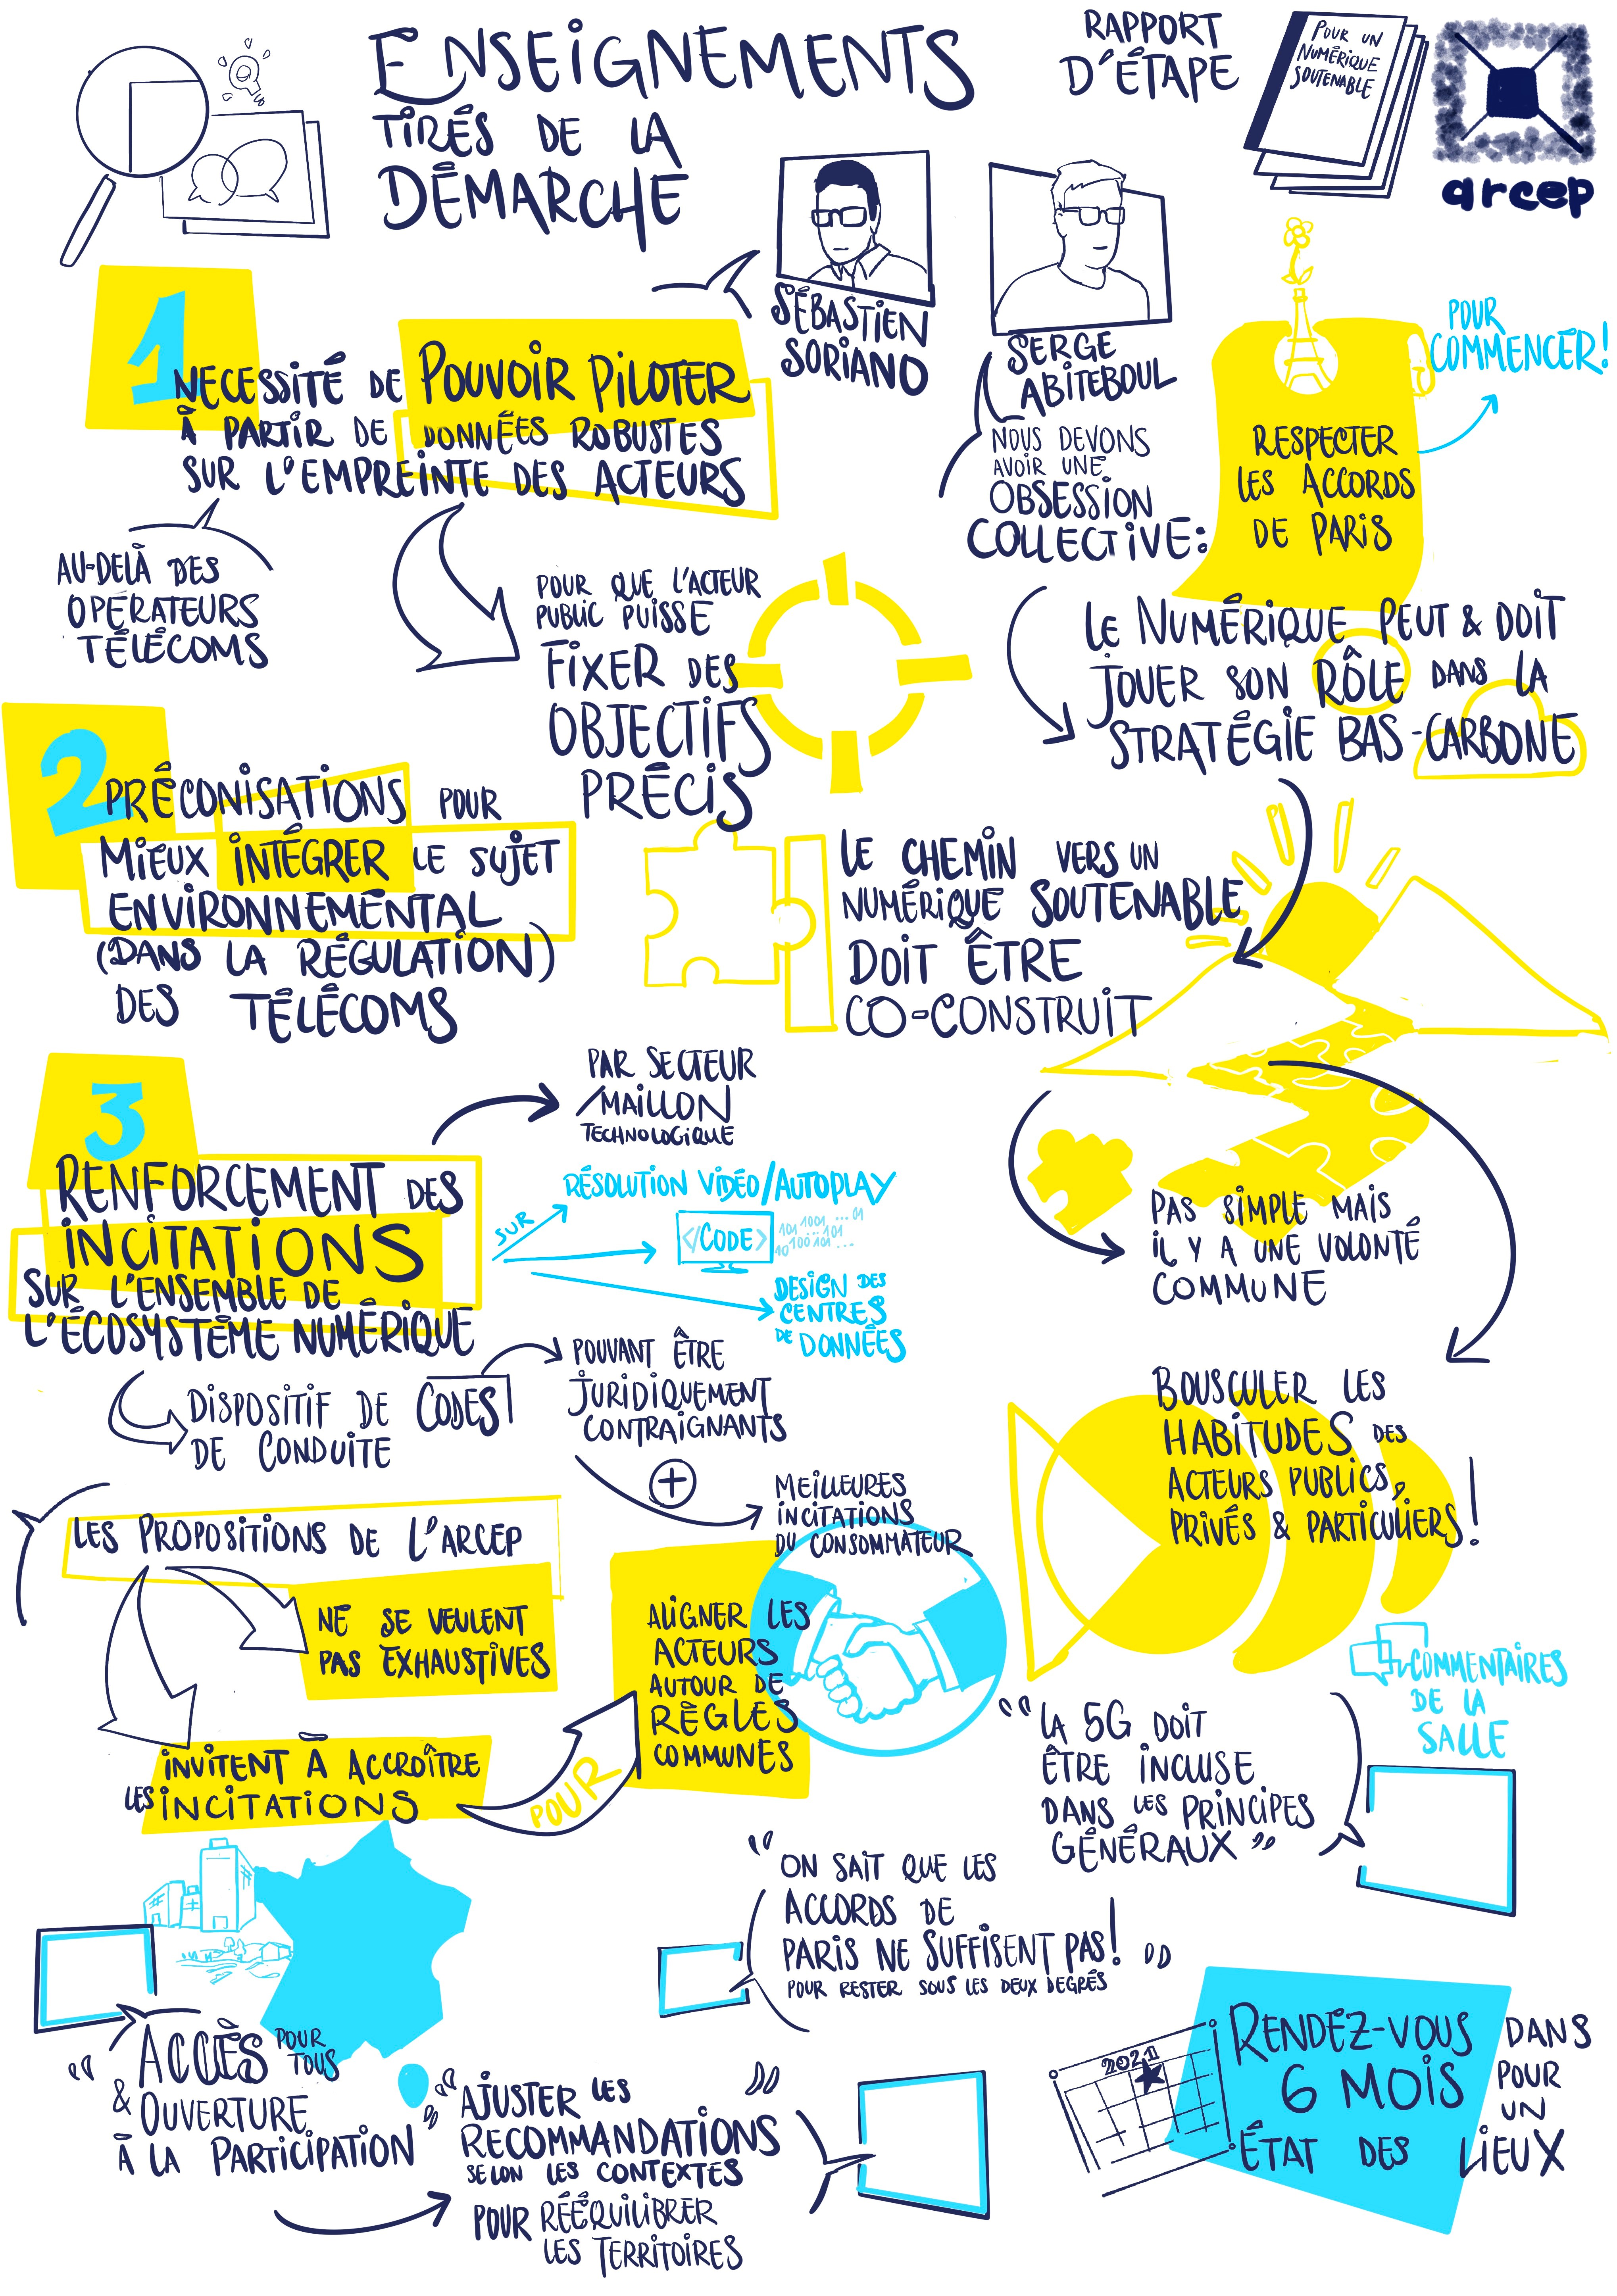 ENSEIGNEMENTS
TIRÉS DE LA
DÉMARCHE
RAPPORT
D'ÉTAPE
POUR UN
NUMÉRIQUE
SOUTENABLE
arcep
SÉBASTIEN
SORIANO
SERGE
ABITEBOUL
1
NECESSITÉ DE POUVOIR PILOTER
À PARTIR DE DONNÉES ROBUSTES
SUR L'EMPREINTE DES ACTEURS
AU-DELÀ DES
OPÉRATEURS
TÉLÉCOMS
POUR QUE L'ACTEUR
PUBLIC PUISSE
FIXER DES
OBJECTIFS
PRÉCIS
NOUS DEVONS
AVOIR UNE
OBSESSION
COLLECTIVE:
RESPECTER
LES ACCORDS
DE PARIS
POUR
COMMENCER!
LE NUMÉRIQUE PEUT & DOIT
JOUER SON RÔLE DANS LA
STRATÉGIE BAS-CARBONE
2
PRÉCONISATIONS POUR
MIEUX INTÉGRER LE SUJET
ENVIRONNEMENTAL
(DANS LA RÉGULATION)
DES TÉLÉCOMS
LE CHEMIN VERS UN
NUMÉRIQUE SOUTENABLE
DOIT ÊTRE
CO-CONSTRUIT
PAS SIMPLE MAIS
IL Y A UNE VOLONTÉ
COMMUNE
BOUSCULER LES
HABITUDES DES
ACTEURS PUBLICS,
PRIVÉS & PARTICULIERS!
3
RENFORCEMENT DES
INCITATIONS
SUR L'ENSEMBLE DE
L'ÉCOSYSTÈME NUMÉRIQUE
PAR SECTEUR
/MAILLON
TECHNOLOGIQUE
SUR
RÉSOLUTION VIDÉO/AUTOPLAY
</CODE>
101 1001 ... 01
101
10 100 101 ...
DESIGN DES
CENTRES
DE DONNÉES
DISPOSITIF DE CODES
DE CONDUITE
POUVANT ÊTRE
JURIDIQUEMENT
CONTRAIGNANTS
+
MEILLEURES
INCITATIONS
DU CONSOMMATEUR
LES PROPOSITIONS DE L'ARCEP
NE SE VEULENT
PAS EXHAUSTIVES
INVITENT À ACCROÎTRE
LES INCITATIONS
POUR
ALIGNER LES
ACTEURS
AUTOUR DE
RÈGLES
COMMUNES
COMMENTAIRES
DE LA
SALLE
"LA 5G DOIT
ÊTRE INCLUSE
DANS LES PRINCIPES
GÉNÉRAUX"
"ON SAIT QUE LES
ACCORDS DE
PARIS NE SUFFISENT PAS!"
POUR RESTER SOUS LES DEUX DEGRÉS
"ACCÈS POUR
TOUS
& OUVERTURE
À LA PARTICIPATION"
"AJUSTER LES
RECOMMANDATIONS"
SELON LES CONTEXTES
POUR RÉÉQUILIBRER
LES TERRITOIRES
2021
RENDEZ-VOUS DANS
6 MOIS POUR
UN
ÉTAT DES LIEUX